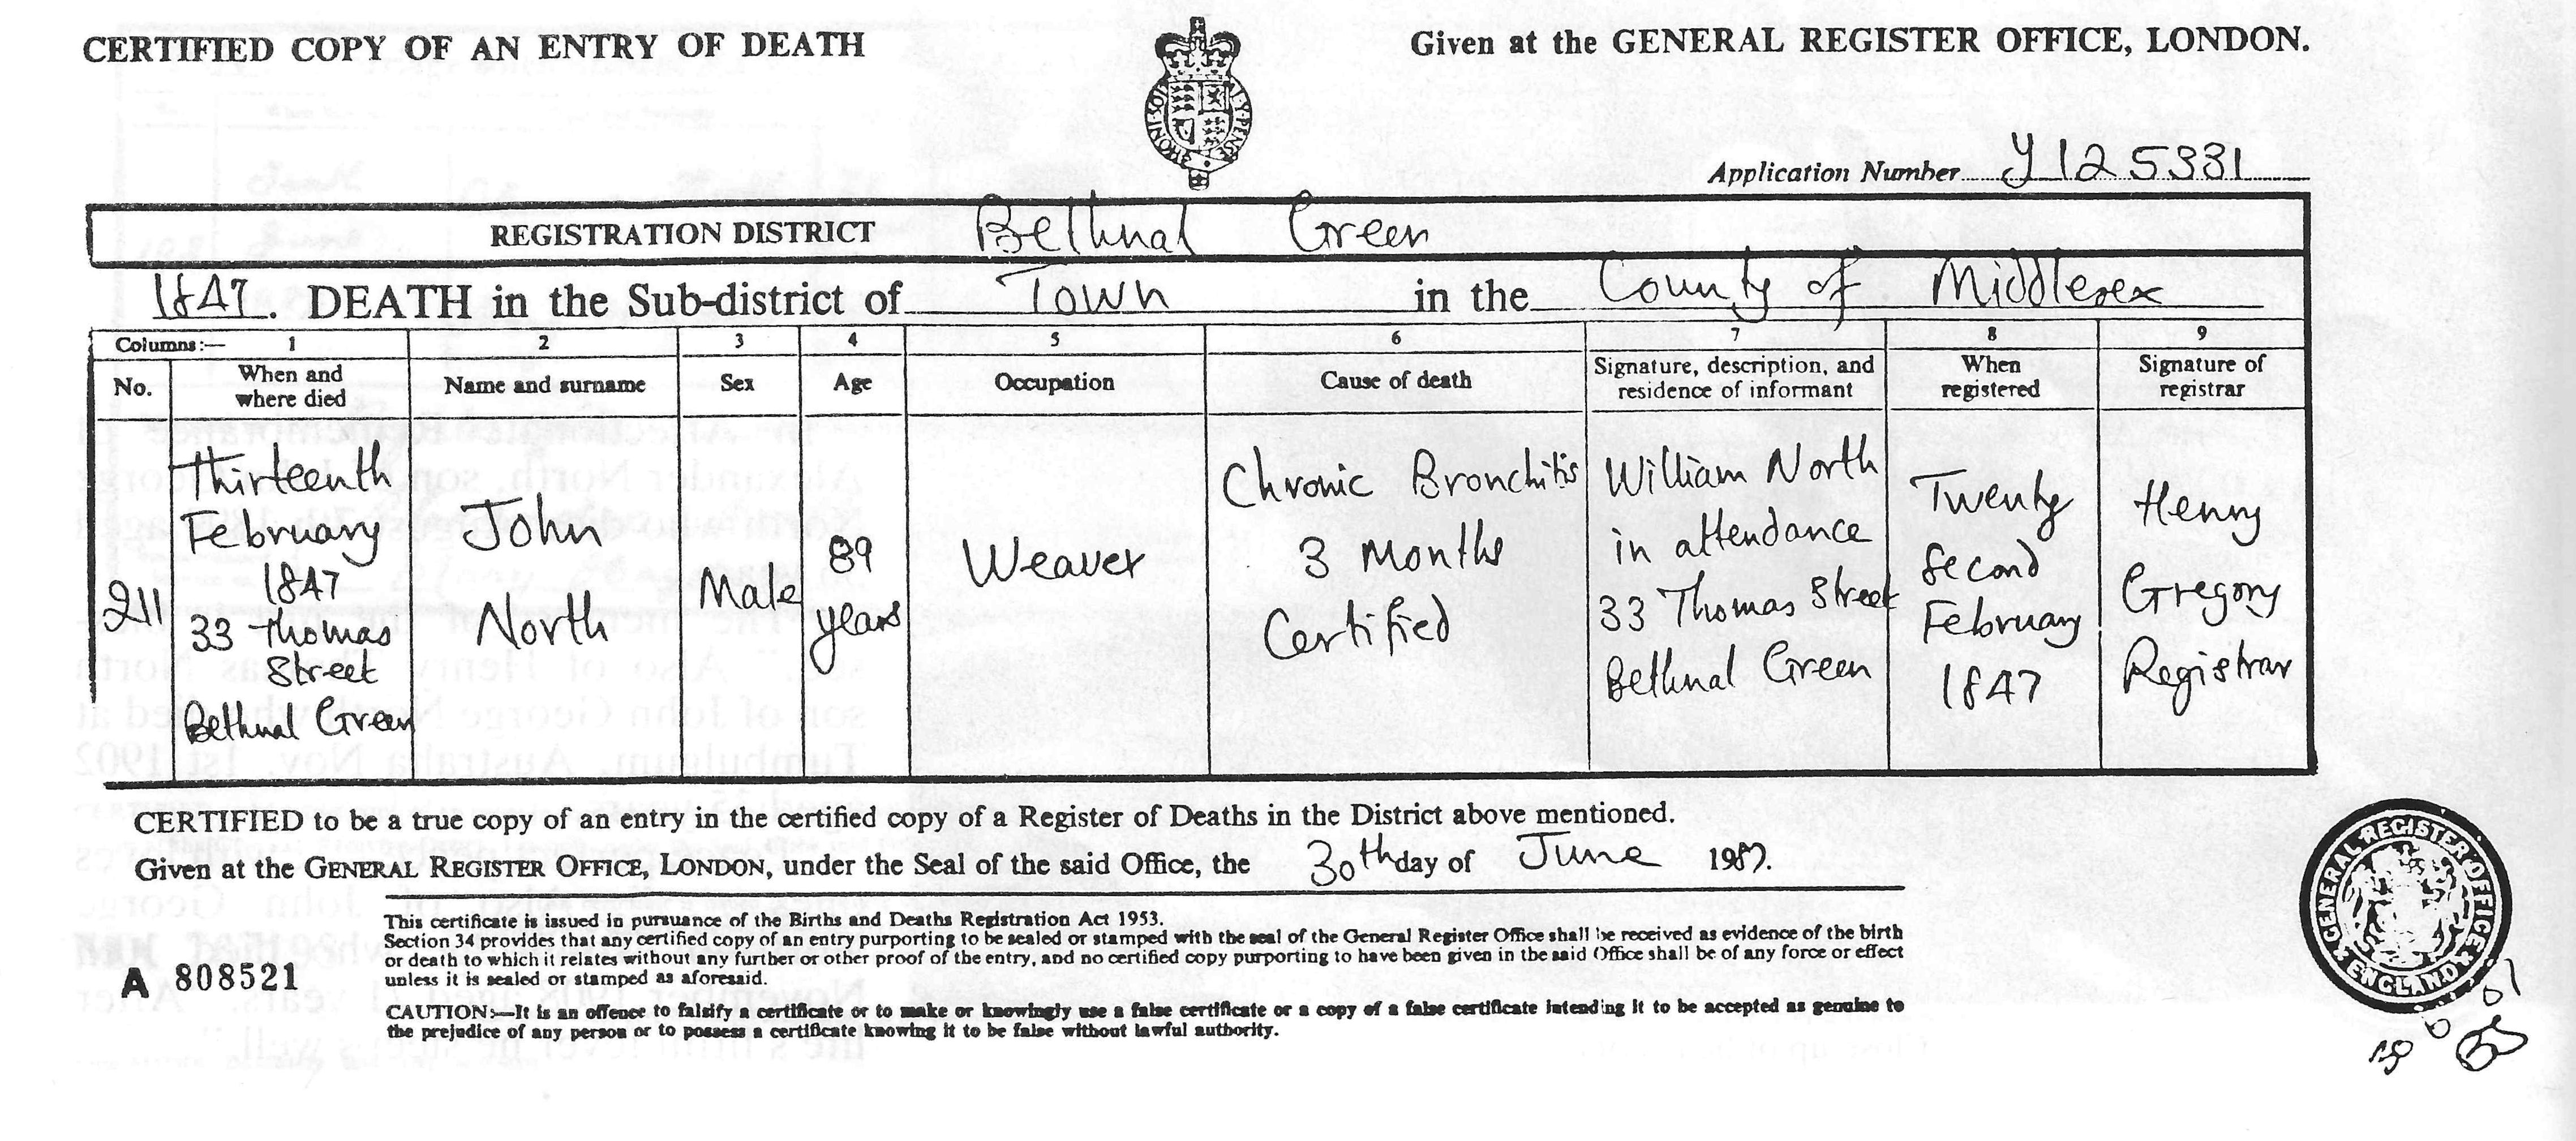 CERTIFIED COPY OF AN ENTRY OF DEATH
Given at the GENERAL REGISTER OFFICE, LONDON.
Application Number Y125331
REGISTRATION DISTRICT Bethnal Green
1847. DEATH in the Sub-district of Town in the County of Middlesex
Columns:— 1 2 3 4 5 6 7 8 9
No.
When and
where died
Name and surname
Sex
Age
Occupation
Cause of death
Signature, description, and
residence of informant
When
registered
Signature of
registrar
211
Thirteenth
February
1847
33 Thomas
Street
Bethnal Green
John
North
Male
89
years
Weaver
Chronic Bronchitis
3 Months
Certified
William North
in attendance
33 Thomas Street
Bethnal Green
Twenty
Second
February
1847
Henry
Gregory
Registrar
CERTIFIED to be a true copy of an entry in the certified copy of a Register of Deaths in the District above mentioned.
Given at the GENERAL REGISTER OFFICE, LONDON, under the Seal of the said Office, the 30th day of June 1987.
This certificate is issued in pursuance of the Births and Deaths Registration Act 1953.
Section 34 provides that any certified copy of an entry purporting to be sealed or stamped with the seal of the General Register Office shall be received as evidence of the birth
or death to which it relates without any further or other proof of the entry, and no certified copy purporting to have been given in the said Office shall be of any force or effect
unless it is sealed or stamped as aforesaid.
A 808521
CAUTION:—It is an offence to falsify a certificate or to make or knowingly use a false certificate or a copy of a false certificate intending it to be accepted as genuine to
the prejudice of any person or to possess a certificate knowing it to be false without lawful authority.
GENERAL REGISTER OFFICE
ENGLAND